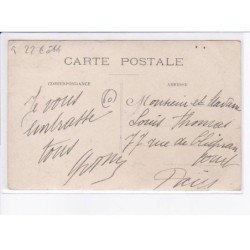 CARTE POSTALE
CORRESPONDANCE
ADRESSE
Je vous
embrasse
tous
Monsieur et Madame
Louis Thomas
77 rue de
Paris